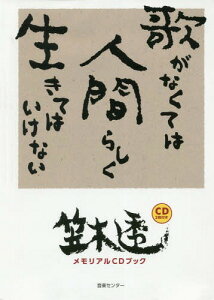 歌がなくては
人間らしく
生きては
いけない
笠木透
CD
2枚付き
メモリアルCDブック
音楽センター